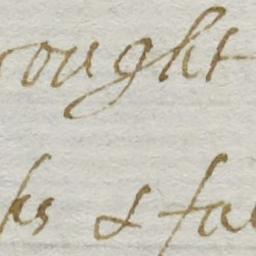 rought
ks & fal